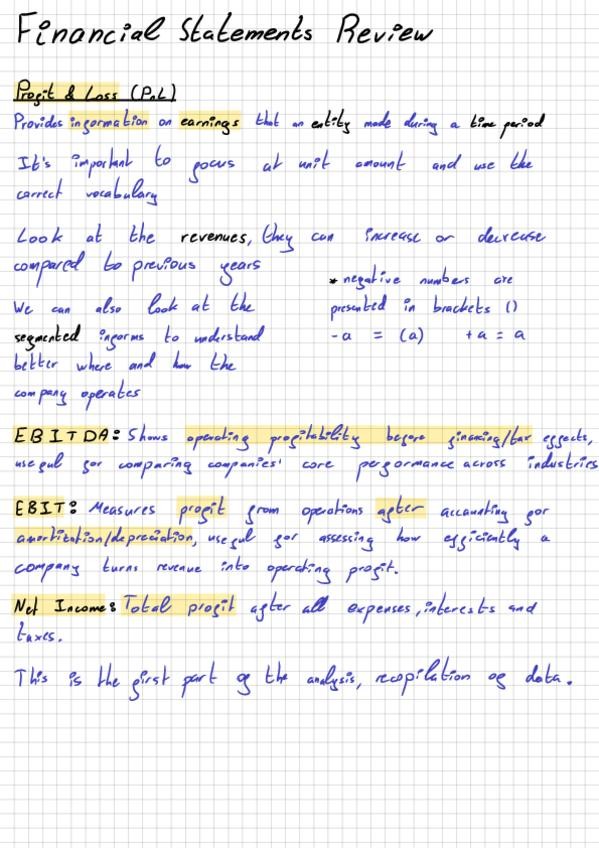 Financial Statements Review
Profit & Loss (PnL)
Provides information on earnings that an entity made during a time period
It's important to focus at unit amount and use the
correct vocabulary
Look at the revenues, they can increase or decrease
compared to previous years
* negative numbers are
presented in brackets ()
-a = (a) +a = a
We can also look at the
segmented informs to understand
better where and how the
company operates
EBITDA: Shows operating profitability before financing/tax effects,
useful for comparing companies' core performance across industries
EBIT: Measures profit from operations after accounting for
amortization/depreciation, useful for assessing how efficiently a
company turns revenue into operating profit.
Net Income: Total profit after all expenses, interests and
taxes.
This is the first part of the analysis, recopilation of data.